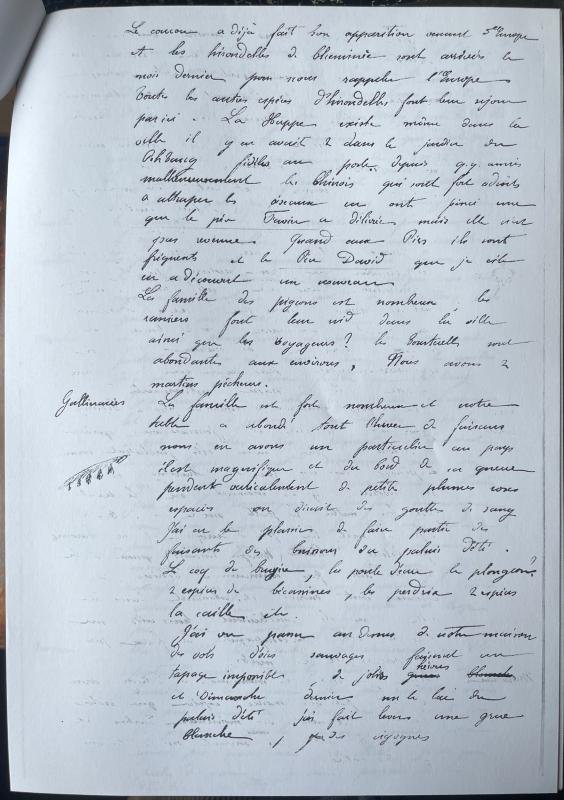 Le coucou a déjà fait son apparition venant d'Europe
et les hirondelles de cheminée sont arrivées le
mois dernier pour nous rappeler l'Europe
toutes les autres espèces d'hirondelles font leur séjour
par ici. La Huppe existe même dans la
ville il y en avait 2 dans le jardin du
fidèles au poste depuis q.q. années
malheureusement les Chinois qui sont fort adroits
a attraper les oiseaux en ont pincé une
que le père Favier a délivrée mais elle n'est
pas revenue. Quand aux Pies ils sont
fréquents et le Père David que je cite
en a découvert un nouveau
La famille des pigeons est nombreux les
ramiers font leur nid dans la ville
ainsi que les voyageurs? les tourterelles sont
abondantes aux environs, Nous avons 2
martins pêcheurs.
Gallinacées La famille est fort nombreux et notre
table a abondé tout l'hiver de faisans
nous en avons un particulier au pays
il est magnifique et du bout de sa queue
pendent verticalement de petites plumes roses
espacées on dirait des gouttes de sang
J'ai eu le plaisir de faire partir des
faisants des buissons du palais d'été.
Le coq de bruyère, les poule d'eau le plongeon?
2 espèces de bécassines, les perdrix 2 espèces
la caille etc.
J'ai vu passer au dessus de notre maison
des vols d'oies sauvages faisant un
tapage impossible, de jolies
et Dimanche dernier sur le lac du
palais d'été j'ai fait lever une grue
blanche, des cigognes